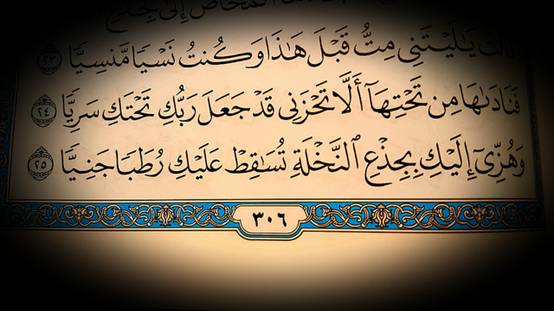 المخاض إلى جذع
قالت يليتني مت قبل هذا وكنت نسيا منسيا ٢٣
فَنَادَىٰهَا مِن تَحْتِهَآ أَلَّا تَحْزَنِى قَدْ جَعَلَ رَبُّكِ تَحْتَكِ سَرِيًّا ٢٤
وَهُزِّىٓ إِلَيْكِ بِجِذْعِ ٱلنَّخْلَةِ تُسَٰقِطْ عَلَيْكِ رُطَبًا جَنِيًّا ٢٥
٣٠٦